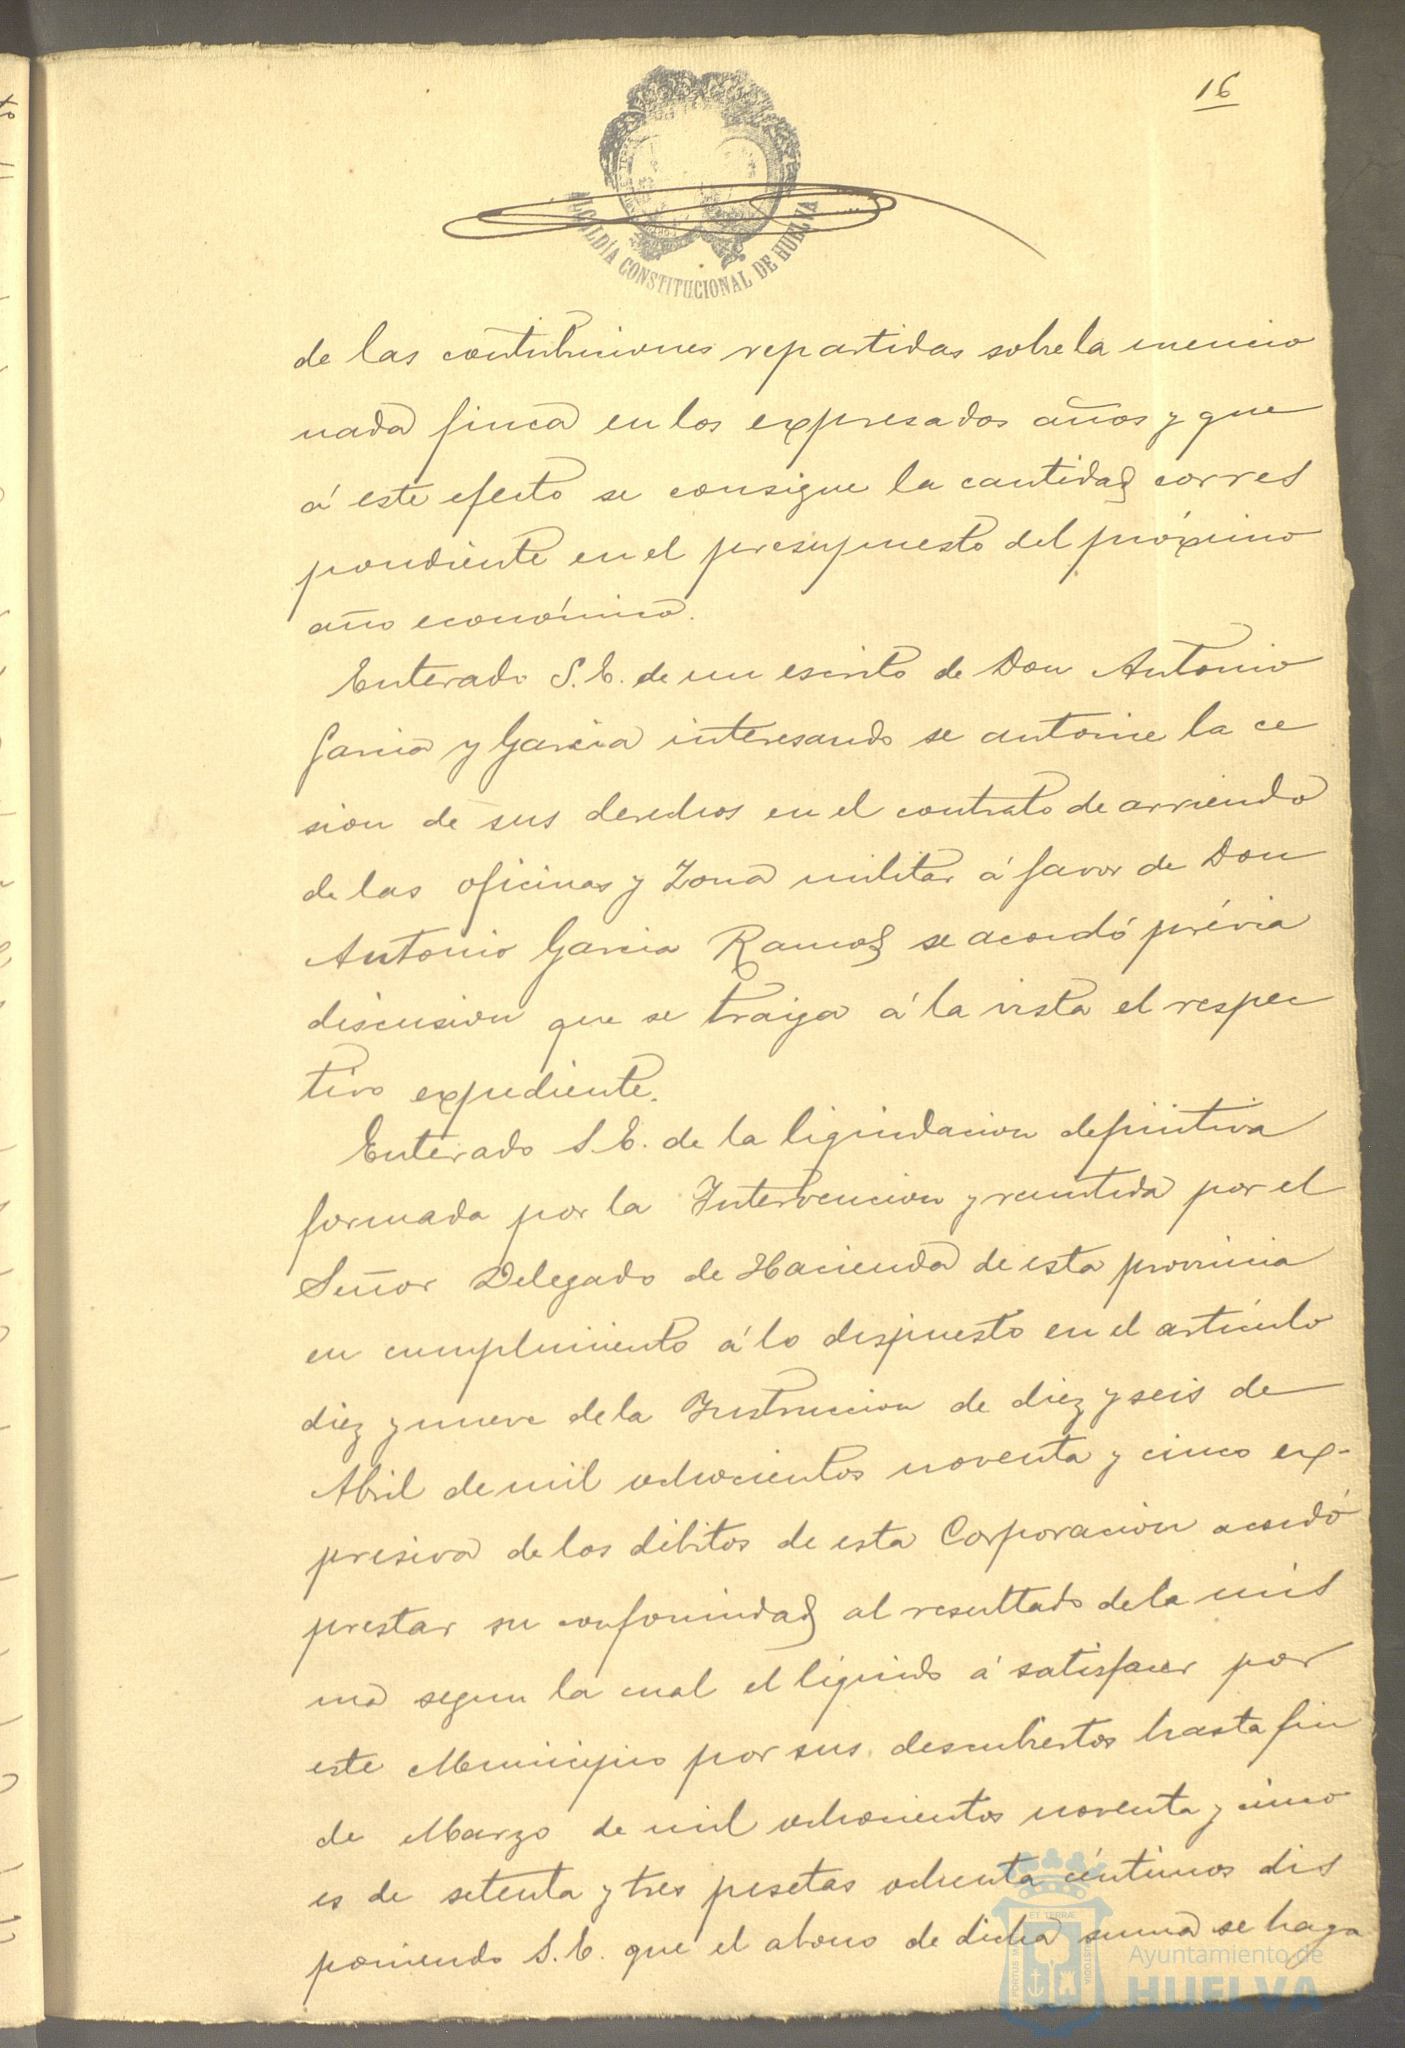 16
ALCALDÍA CONSTITUCIONAL DE HUELVA
de las contribuciones repartidas sobre la mencio
nada finca en los expresados años y que
á este efecto se consigne la cantidad corres
pondiente en el presupuesto del próximo
año económico.
Enterado S. E. de un escrito de Don Antonio
Garcia y Garcia interesando se autorice la ce
sion de sus derechos en el contrato de arriendo
de las oficinas y Zona militar á favor de Don
Antonio Garcia Ramos se acordó prévia
discusion que se traiga á la vista el respec
tivo expediente.
Enterado S. E. de la liquidacion definitiva
formada por la Intervencion y remitida por el
Señor Delegado de Hacienda de esta provincia
en cumplimiento á lo dispuesto en el artículo
diez y nueve de la Instruccion de diez y seis de
Abril de mil ochocientos noventa y cinco ex-
presiva de los débitos de esta Corporacion acordó
prestar su conformidad al resultado de la mis
ma segun la cual el líquido á satisfacer por
este Municipio por sus descubiertos hasta fin
de Marzo de mil ochocientos noventa y cinco
es de setenta y tres pesetas ochenta céntimos dis
poniendo S. E. que el abono de dicha suma se haga
Ayuntamiento de
HUELVA